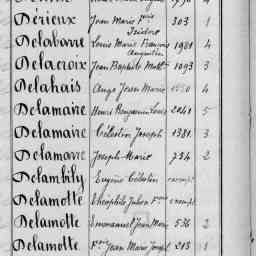 Dérieux Jean Marie Fçois Isidore 303 1
Delabarre Louis Marie François Augustin 1981 4
Delacroix Jean Baptiste Mathn 1093 3
Delahais Ange Jean Marie 4
Delamaire Henri Benjamin Louis 2041 5
Delamaire Célestin Joseph 1381 3
Delamarre Joseph Marie 734 2
Delambily Eugène Célestin exempt
Delamotte Théophile Julien exempt
Delamotte Emmanuel Jean Marie 536 2
Delamotte Jean Marie Joseph 213 1